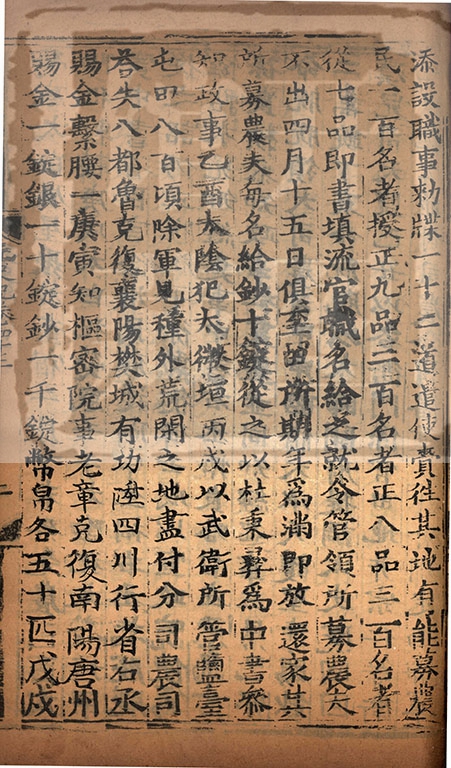 添設職事勑牒一十二道遣使賫往其地有能募農
民一百名者授正九品二百名者正八品三百名者
從七品即書填流官職名給之就令管領所募農夫
不出四月十五日俱至田所期年爲滿即放還家其
所募農夫每名給鈔十錠從之以杜秉彞爲中書叅
知政事乙酉太陰犯太微垣丙戌以武衛所管鹽臺
屯田八百頃除軍見種外荒閑之地盡付分司農司
荅失八都魯克復襄陽樊城有功陞四川行省右丞
賜金繫腰一庚寅知樞密院事老章克復南陽唐州
賜金一錠銀一十錠鈔一千錠幣帛各五十匹戊戌